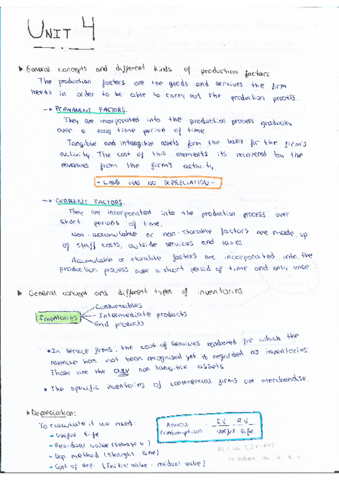 UNIT 4
General concepts and different kinds of production factors
The production factors are the goods and services the firm
needs in order to be able to carry out the production process.
→ PERMANENT FACTORS
They are incorporated into the production process gradually
over a long time period of time
Tangible and intangible assets form the basis for the firm's
activity. The cost of this elements its recovered by the
revenues from the firm's activity.
- LAND HAS NO DEPRECIATION -
→ CURRENT FACTORS
They are incorporated into the production process over
short periods of time.
Non-accumulable or non-storable factors are made up
of staff costs, outside services and taxes.
Accumulable or storable factors are incorporated into the
production process over a short period of time and only once
General concept and different types of inventories
Inventories
Consumables
Intermediate products
End products
In service firms, the cost of services rendered for which the
revenue has not been recognised yet is regarded as inventories
These are the ONLY non tangible assets.
The specific inventories of commercial firms are merchandise.
Depreciation:
To calculate it we need:
- Useful life
- Residual value
- Dep method (straight line)
- Cost of dep. (Initial value - residual value)
Annual Consumption = I.V. - R.V.
Useful life